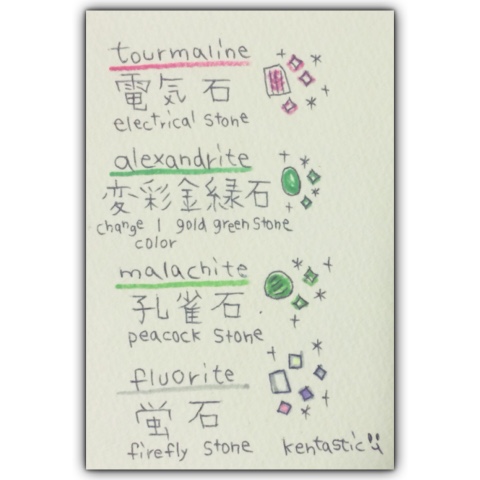 tourmaline
電気石
electrical stone
alexandrite
変彩金緑石
change | gold green stone
color
malachite
孔雀石
peacock stone
fluorite
蛍石
firefly stone
kentastic